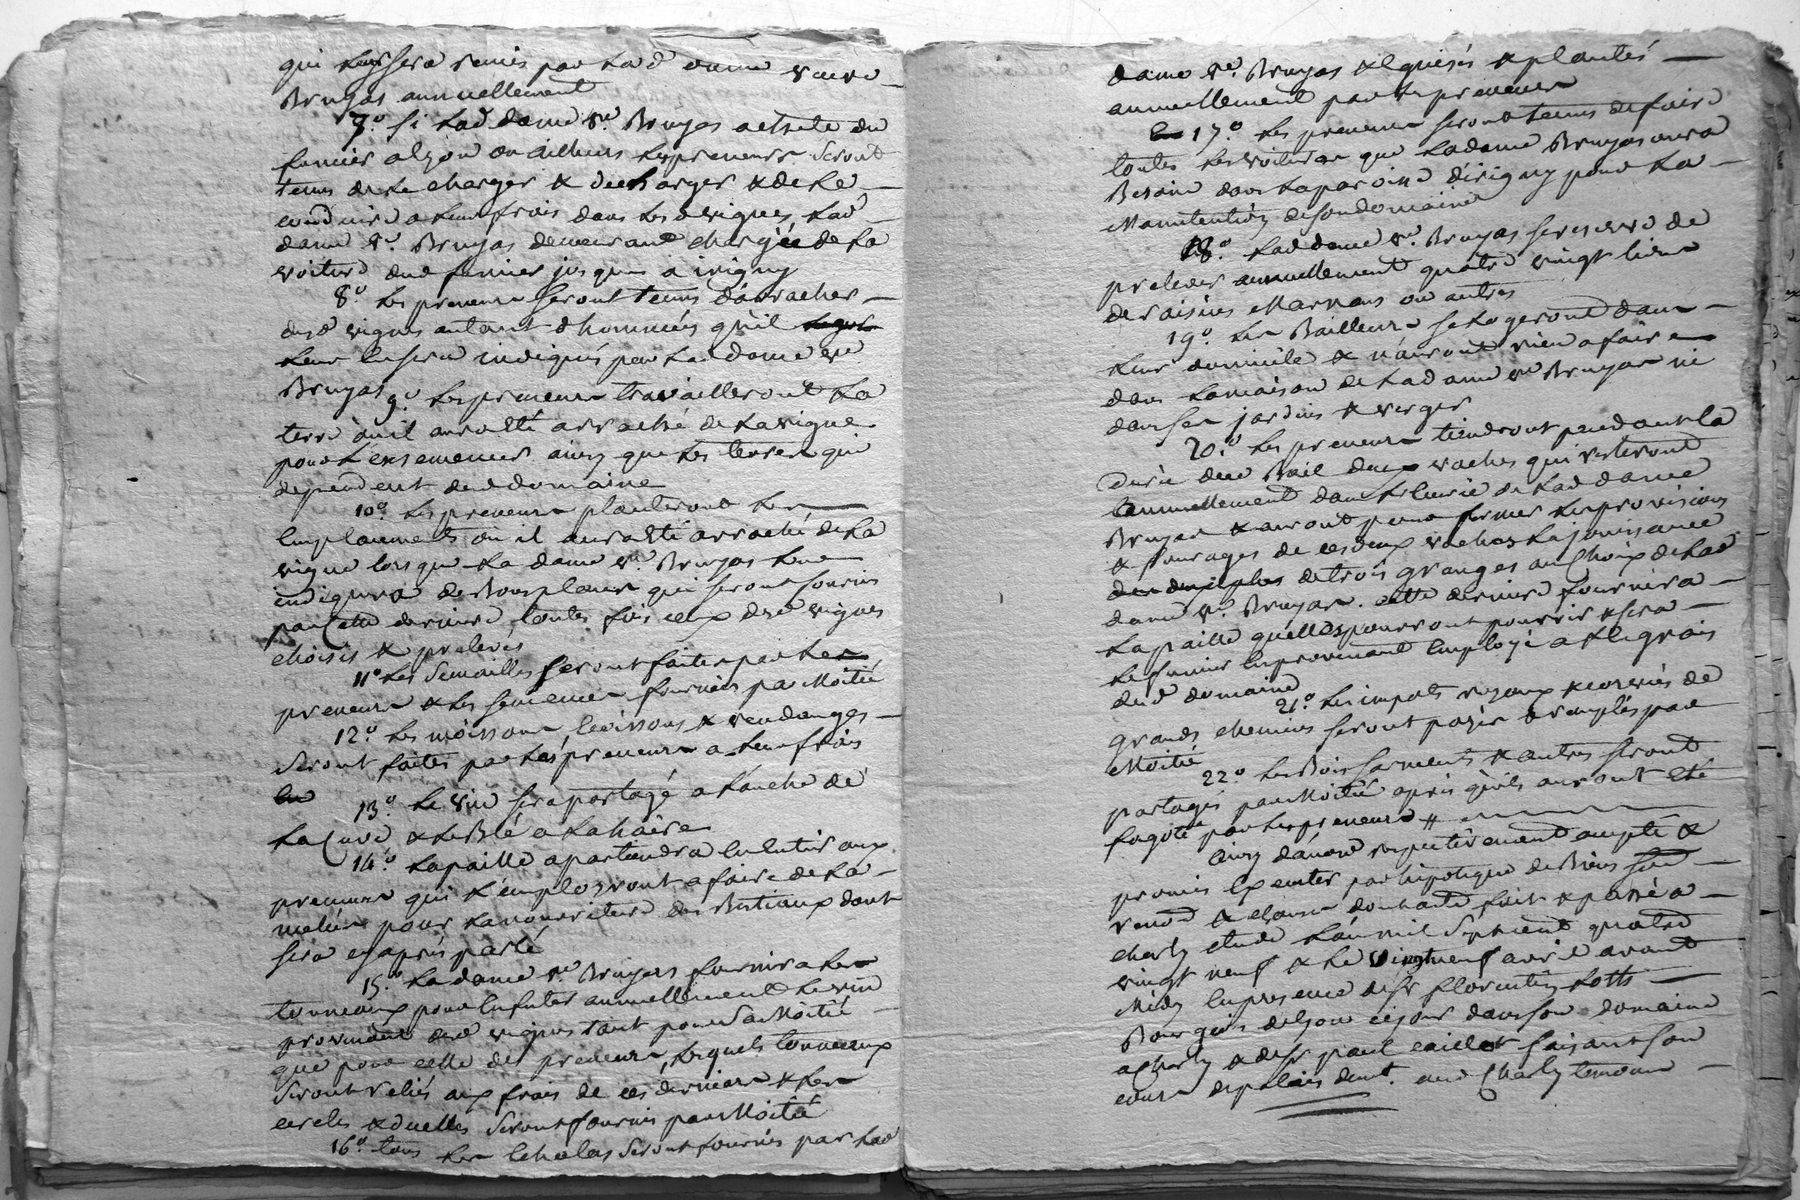 qui leur sera remis par lad dame veuve
Bruyas annuellement
7.° si lad dame ve. Bruyas achete du
fumier a lyon ou ailleurs les preneurs seront
tenus de le charger & decharger & de le
conduire a leurs frais dans les d vignes, lad
dame ve. Bruyas demeurant chargée de la
voiture dud fumier jusques à irigny
8.° les preneurs seront tenus d'arracher
desd vignes autant d'hommées qu'il
leur en sera indiqués par lad dame ve
Bruyas 9.° les preneurs travailleront la
terre ou il aura été arraché de la vigne
pour l'ensemencer ainsy que les terres qui
dependent dud domaine
10.° les preneurs planteront les
emplacements ou il aura été arraché de la
vigne lorsque la dame ve. Bruyas leur
indiquera de bons plans qui seront fournis
par cette derniere, toutes fois ceux desd vignes
choisis & prelevés
11° les semailles seront faites par les
preneurs & les semences fournies par Moitié
12.° les moissons, & vendanges
seront faites par les preneurs a leurs frais
13.° le vin sera partagé a l'anche de
la Cuve & le Blé a la haire
14.° la paille apartiendra en entier aux
preneurs qui l'employront a faire de la
melée pour la nourriture des Bestiaux dont
sera cy après parlé
15.° la dame ve. Bruyas fournira les
tonneaux pour enfuter annuellement le vin
provenant desd vignes tant pour sa Moitié
que pour celle des preneurs, lesquels tonneaux
seront reliés aux frais de ces derniers & les
cercles & duelles seront fournis par Moitié
16° tous les echalas seront fournis par lad
dame ve. Bruyas & éguisés & plantés
annuellement par les preneurs
17.° les preneurs seront tenus de faire
toutes les voitures que lad dame Bruyas aura
Besoin dans la paroisse d'irigny pour la
Manutention de son domaine
18.° lad dame ve. Bruyas se reserve de
prelever annuellement quatre vingt livres
de raisins Marnans ou autres
19.° les Bailleurs se logeront dans
leur domicile & n'auront rien a faire
dans la maison de lad dame ve Bruyas ni
dans ses jardins & verger
20.° les preneurs tiendront pendant la
durée dud Bail deux vaches qui resteront
annuellement dans l'ecurie de lad dame
Bruyas & auront pour former les provisions
& fourages de ces deux vaches la jouissance
de trois granges au Choix de lad
dame ve. Bruyas. cette derniere fournira
la paille qu'elles pourront pourrir & sera
le fumier en provenant employé a l'engrais
dud domaine
21.° les impots royaux & corvées de
grands chemins seront payés & remplis par
Moitié
22° les Bois sarments & autres seront
partagés par Moitié après qu'ils auront été
fagoté par les preneurs //
ainsy d'accord respectivement accepté &
promis executer par hipoteque de Biens
renond & clauses dont acte fait & passé a
charly etude l'an mil sept cent quatre
vingt neuf & le vingt neuf avril avant
Midy en presence de sr florentin
Bourgeois de lyon ce jour dans son domaine
a Charly & de sr paul caillot faisant son
cours de palais demt. aud Charly temoins